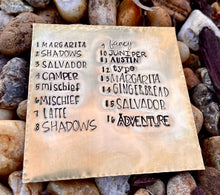 1 MARGARITA
2 SHADOWS
3 SALVADOR
4 CAMPER
5 mischief
6 MISCHIEF
7 LATTE
8 SHADOWS
9 Fancy
10 JUNIPER
11 AUSTIN
12 type
13 MARGARITA
14 GINGERBREAD
15 SALVADOR
16 ADVENTURE